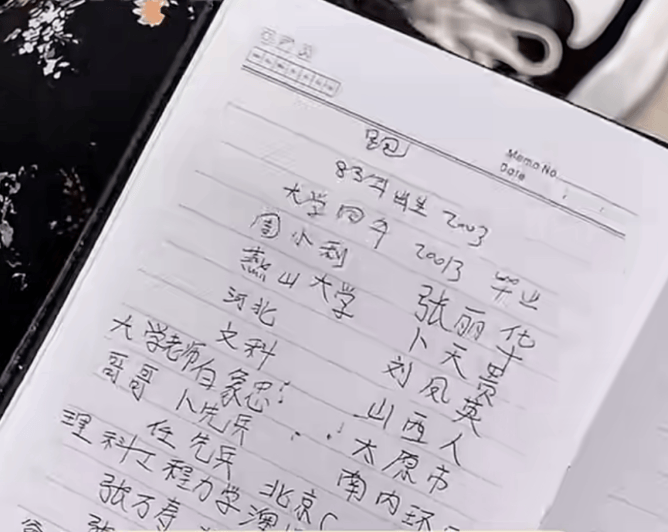 Memo No.
Date
83年出生 2003
大学四年 20013 毕业
周小利 张丽华
燕山大学 卜天贵
河北 刘凤英
文科 山西人
大学老师白象忠: 太原市
哥哥 卜先兵 南内环
任先兵 北京
理科工程力学
张万寿